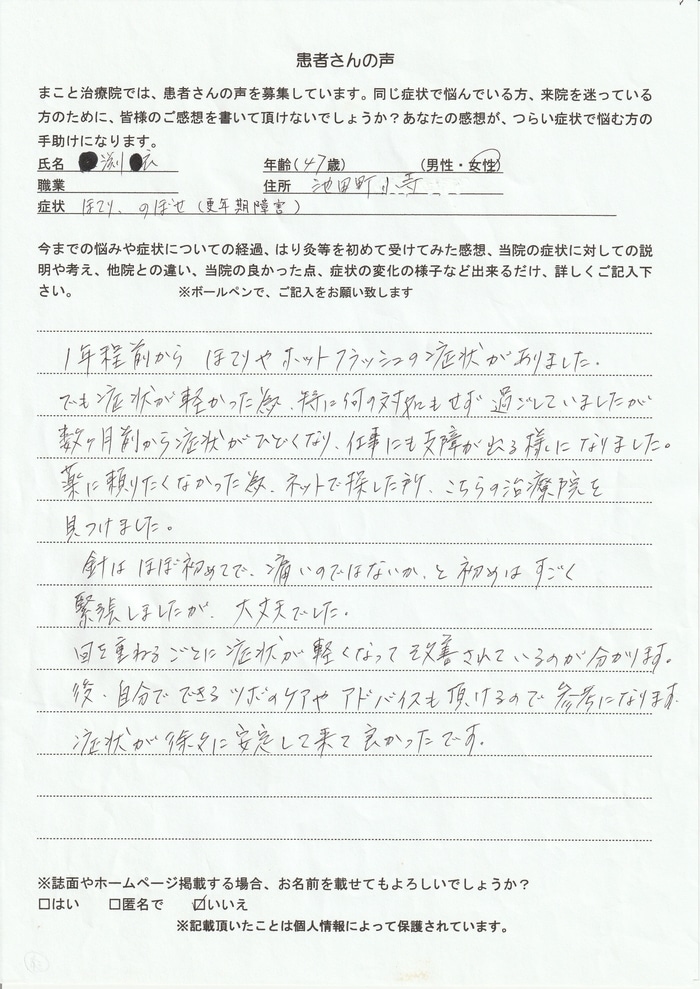 患者さんの声
まこと治療院では、患者さんの声を募集しています。同じ症状で悩んでいる方、来院を迷っている
方のために、皆様のご感想を書いて頂けないでしょうか？あなたの感想が、つらい症状で悩む方の
手助けになります。
氏名 渕 衣 年齢(47歳) (男性・女性)
職業 住所 池田町小寺
症状 ほてり、のぼせ(更年期障害)
今までの悩みや症状についての経過、はり灸等を初めて受けてみた感想、当院の症状に対しての説
明や考え、他院との違い、当院の良かった点、症状の変化の様子など出来るだけ、詳しくご記入下
さい。 ※ボールペンで、ご記入をお願い致します
1年程前から ほてりやホットフラッシュの症状がありました.
でも症状が軽かった為、特に何の対処もせず過ごしていましたが
数ヶ月前から症状がひどくなり、仕事にも支障が出る様になりました。
薬に頼りたくなかった為、ネットで探した所、こちらの治療院を
見つけました。
針は ほぼ初めてで、痛いのではないか、と初めは すごく
緊張しましたが、大丈夫でした。
回を重ねるごとに症状が軽くなって改善されているのが分かります。
後、自分でできるツボのケアや アドバイスも頂けるので 参考になります.
症状が徐々に安定して来て良かったです。
※誌面やホームページ掲載する場合、お名前を載せてもよろしいでしょうか？
□はい □匿名で ☑いいえ
※記載頂いたことは個人情報によって保護されています。